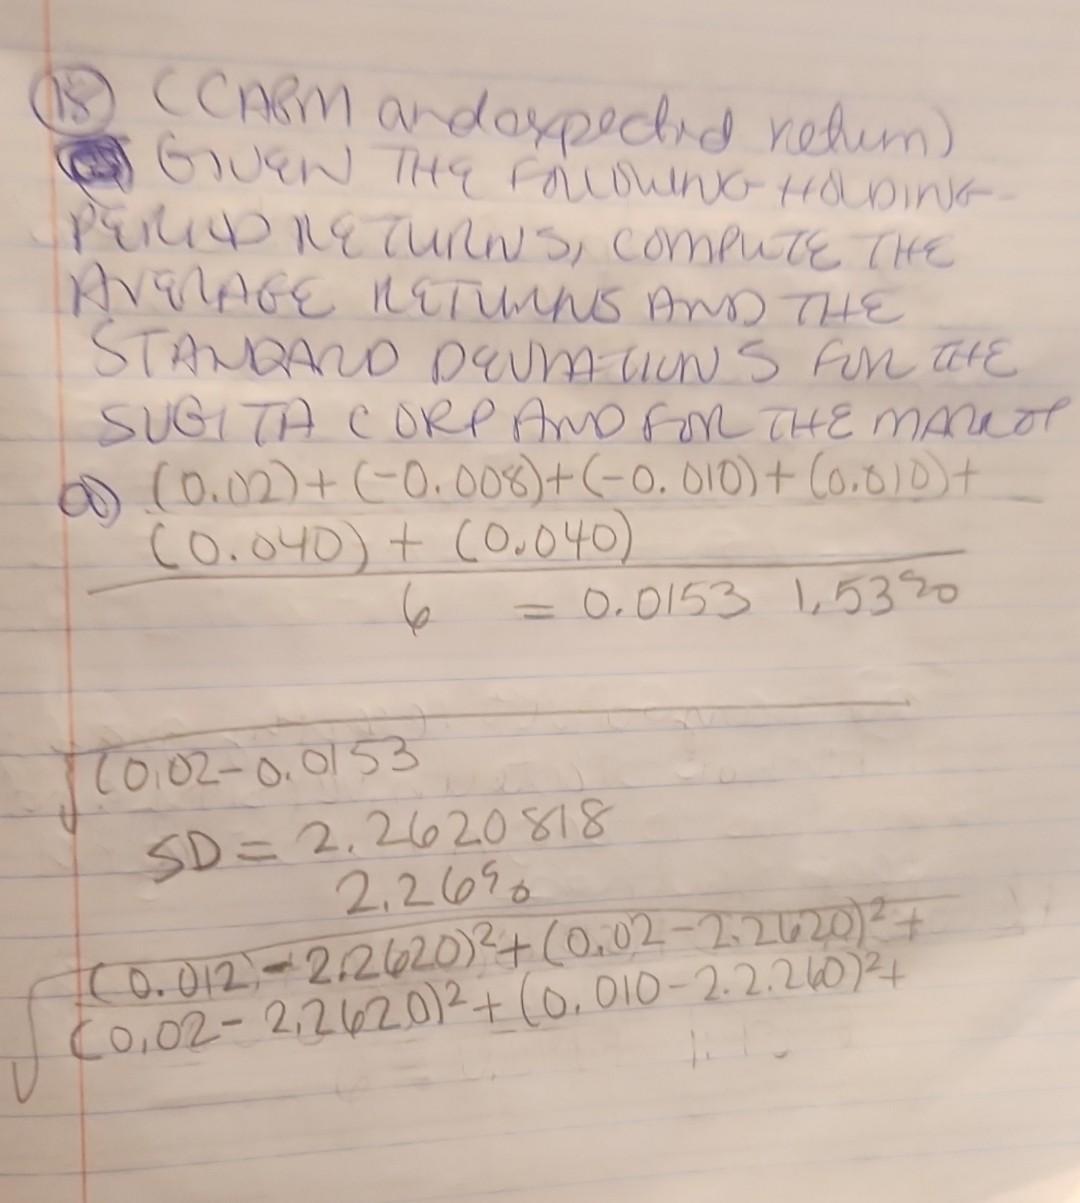 18 (CAPM and expected return)
GIVEN THE FOLLOWING HOLDING-
PERIOD RETURNS, COMPUTE THE
AVERAGE RETURNS AND THE
STANDARD DEVIATIONS FOR THE
SUGITA CORP AND FOR THE MARKET
a) (0.02)+(-0.008)+(-0.010)+(0.010)+
(0.040) + (0.040)
6 = 0.0153 1.53%
√(0.02-0.0153
SD = 2.2620818
2.26%
√(0.012-2.2620)²+(0.02-2.2620)²+
(0.02-2.2620)²+(0.010-2.2.260)²+